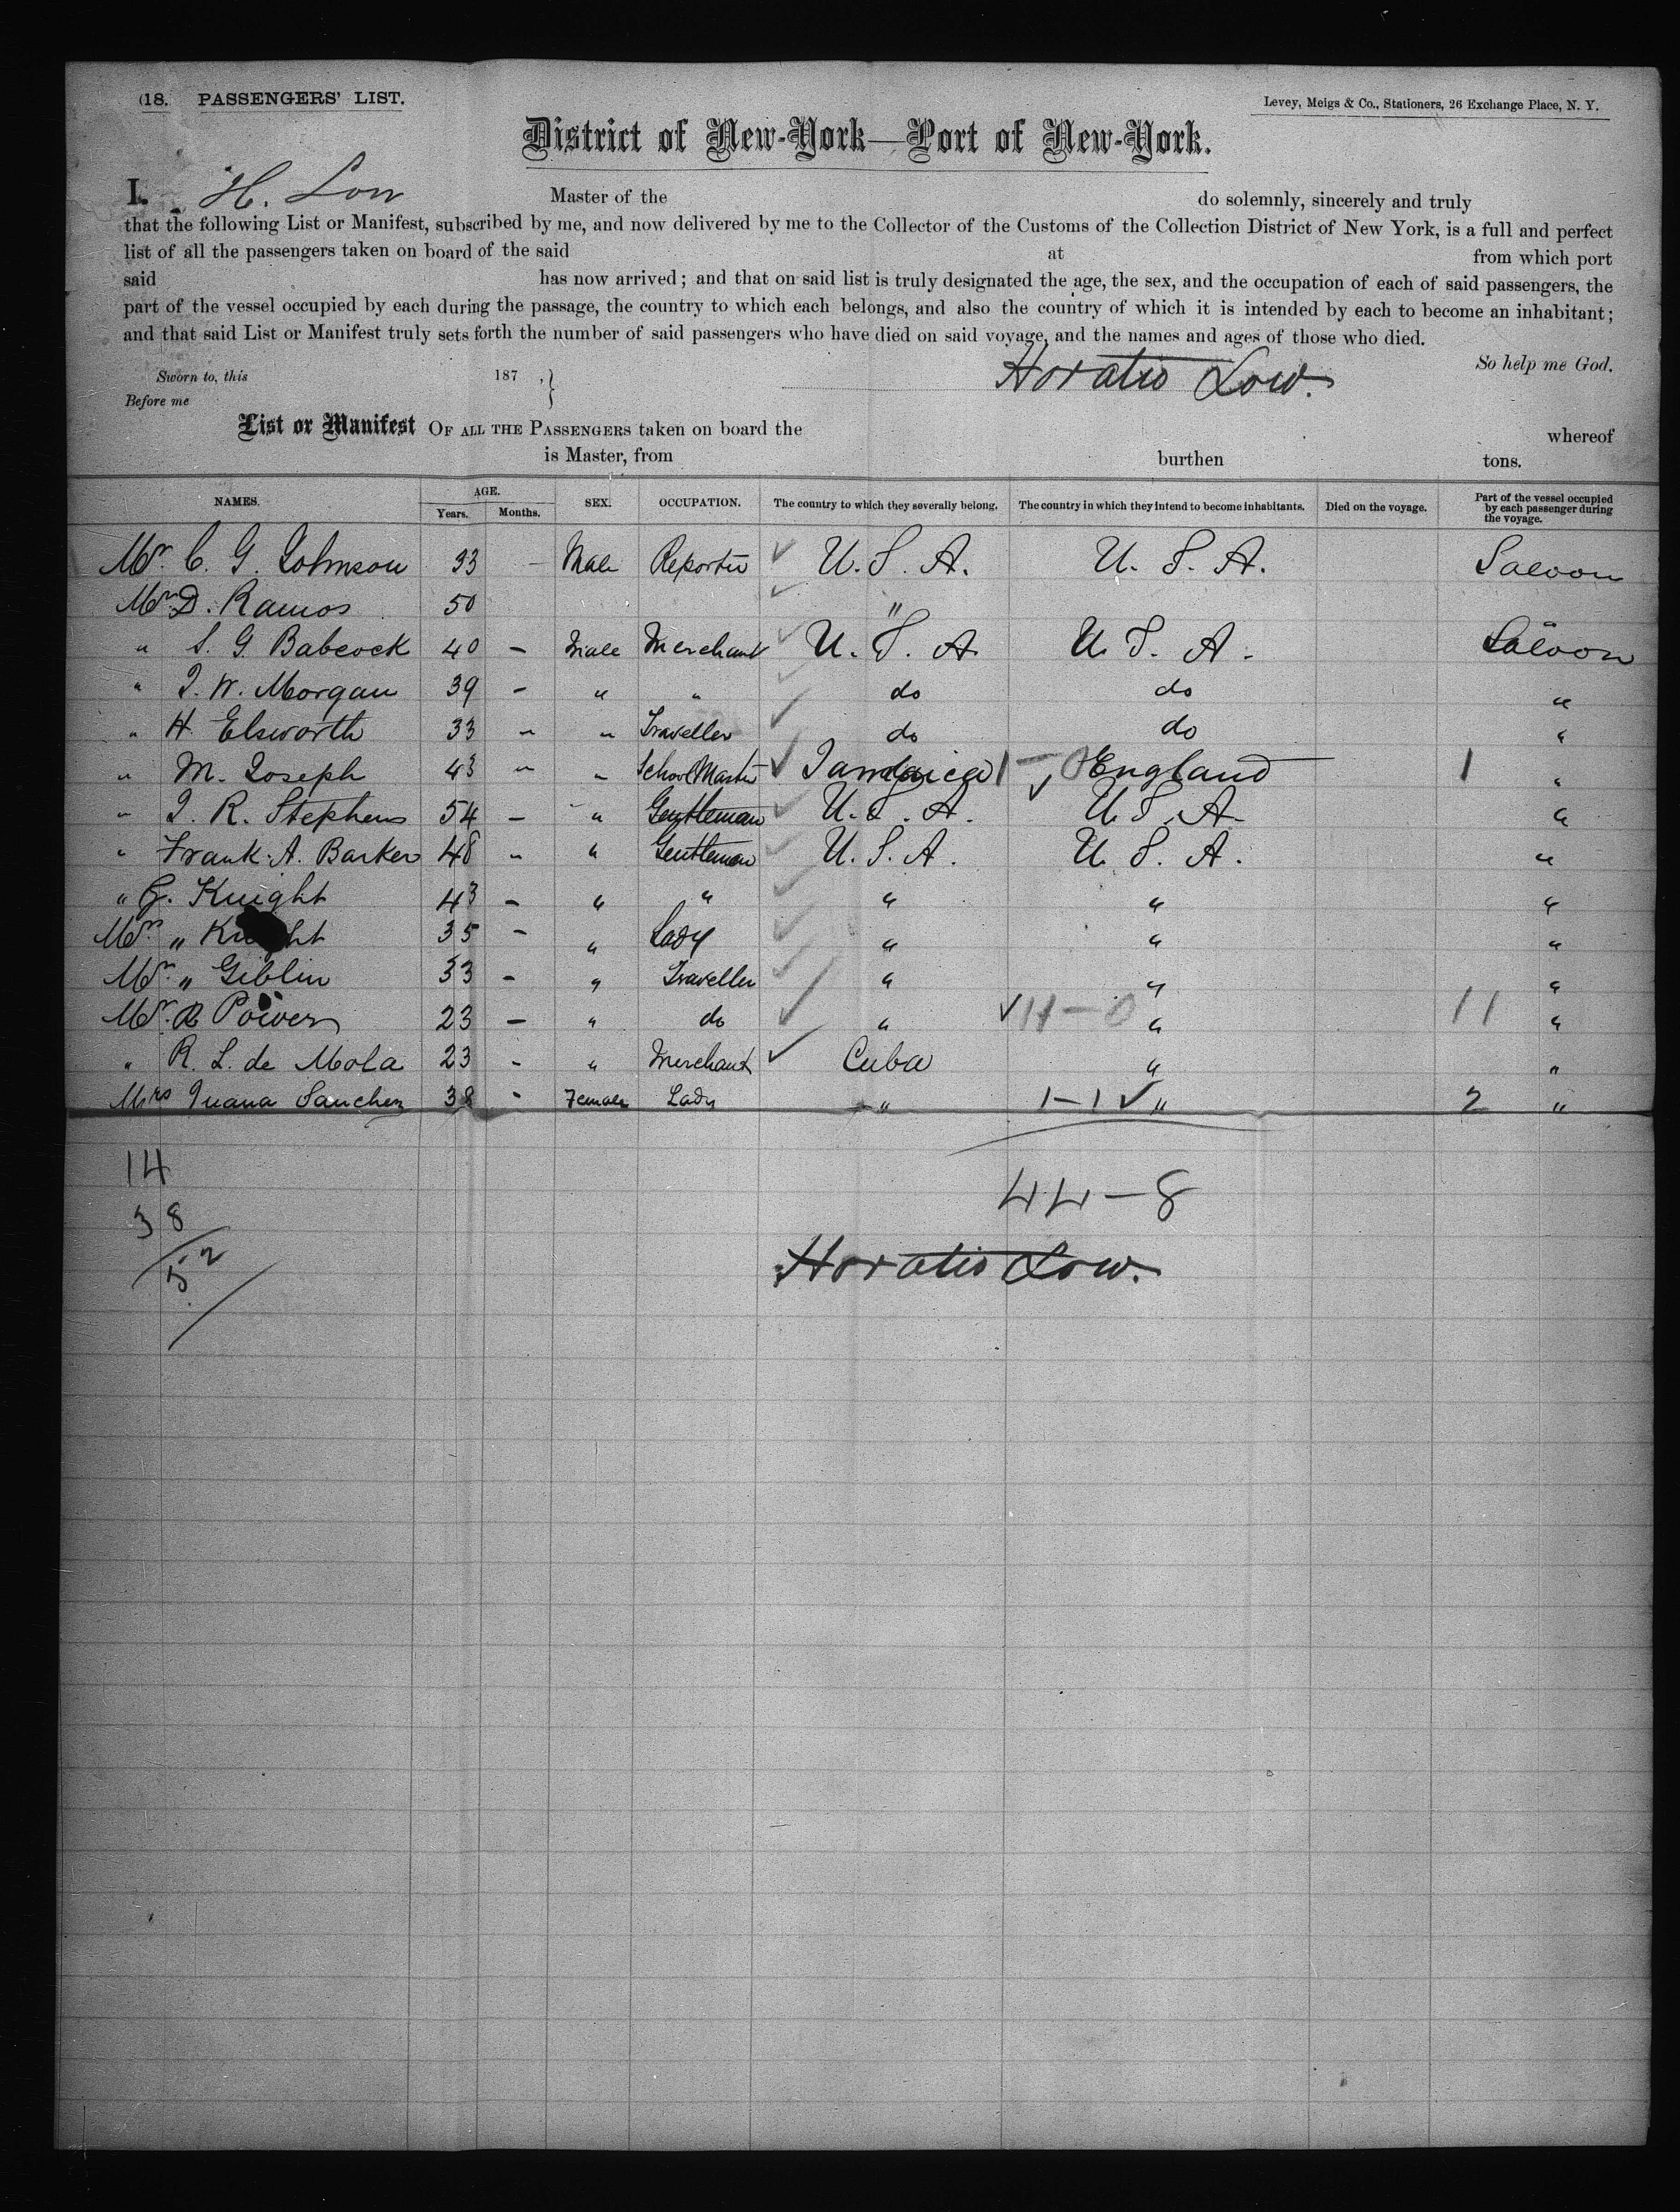 (18. PASSENGERS' LIST.
Levey, Meigs & Co., Stationers, 26 Exchange Place, N. Y.
District of New-York—Port of New-York.
I. H. Low Master of the do solemnly, sincerely and truly
that the following List or Manifest, subscribed by me, and now delivered by me to the Collector of the Customs of the Collection District of New York, is a full and perfect
list of all the passengers taken on board of the said at from which port
said has now arrived; and that on said list is truly designated the age, the sex, and the occupation of each of said passengers, the
part of the vessel occupied by each during the passage, the country to which each belongs, and also the country of which it is intended by each to become an inhabitant;
and that said List or Manifest truly sets forth the number of said passengers who have died on said voyage, and the names and ages of those who died.
So help me God.
Sworn to, this 187 , } Horatio Low.
Before me
List or Manifest OF ALL THE PASSENGERS taken on board the whereof
is Master, from burthen tons.
NAMES. AGE. Years. Months. SEX. OCCUPATION. The country to which they severally belong. The country in which they intend to become inhabitants. Died on the voyage. Part of the vessel occupied by each passenger during the voyage.
Mr. C. G. Johnson 33 - Male Reporter ✓ U.S.A. U.S.A. Saloon
Mr. D. Ramos 50 ✓ "
" S. G. Babcock 40 - Male Merchant ✓ U.S.A U S. A. Saloon
" J. W. Morgan 39 - " " ✓ do do "
" H. Elsworth 33 " " Traveller ✓ do do "
" M. Joseph 43 " " School Master ✓ Jamaica 1-0 ✓ England 1 "
" J. R. Stephens 54 - " Gentleman ✓ U.S.A. U.S.A. "
" Frank A. Barker 48 - " Gentleman ✓ U.S.A. U.S.A. "
" G. Knight 43 - " " ✓ " " "
Mrs. " Knight 35 - " Lady ✓ " " "
Mr. " Giblin 33 - " Traveller ✓ " " "
Mr. R Powers 23 - " do ✓ " ✓ 11-0 " 11 "
" R. L. de Mola 23 - " Merchant ✓ Cuba " "
Mrs Juana Sanchez 38 - Female Lady " 1-1 ✓ " 2 "
14
38
52
44-8
Horatio Low.